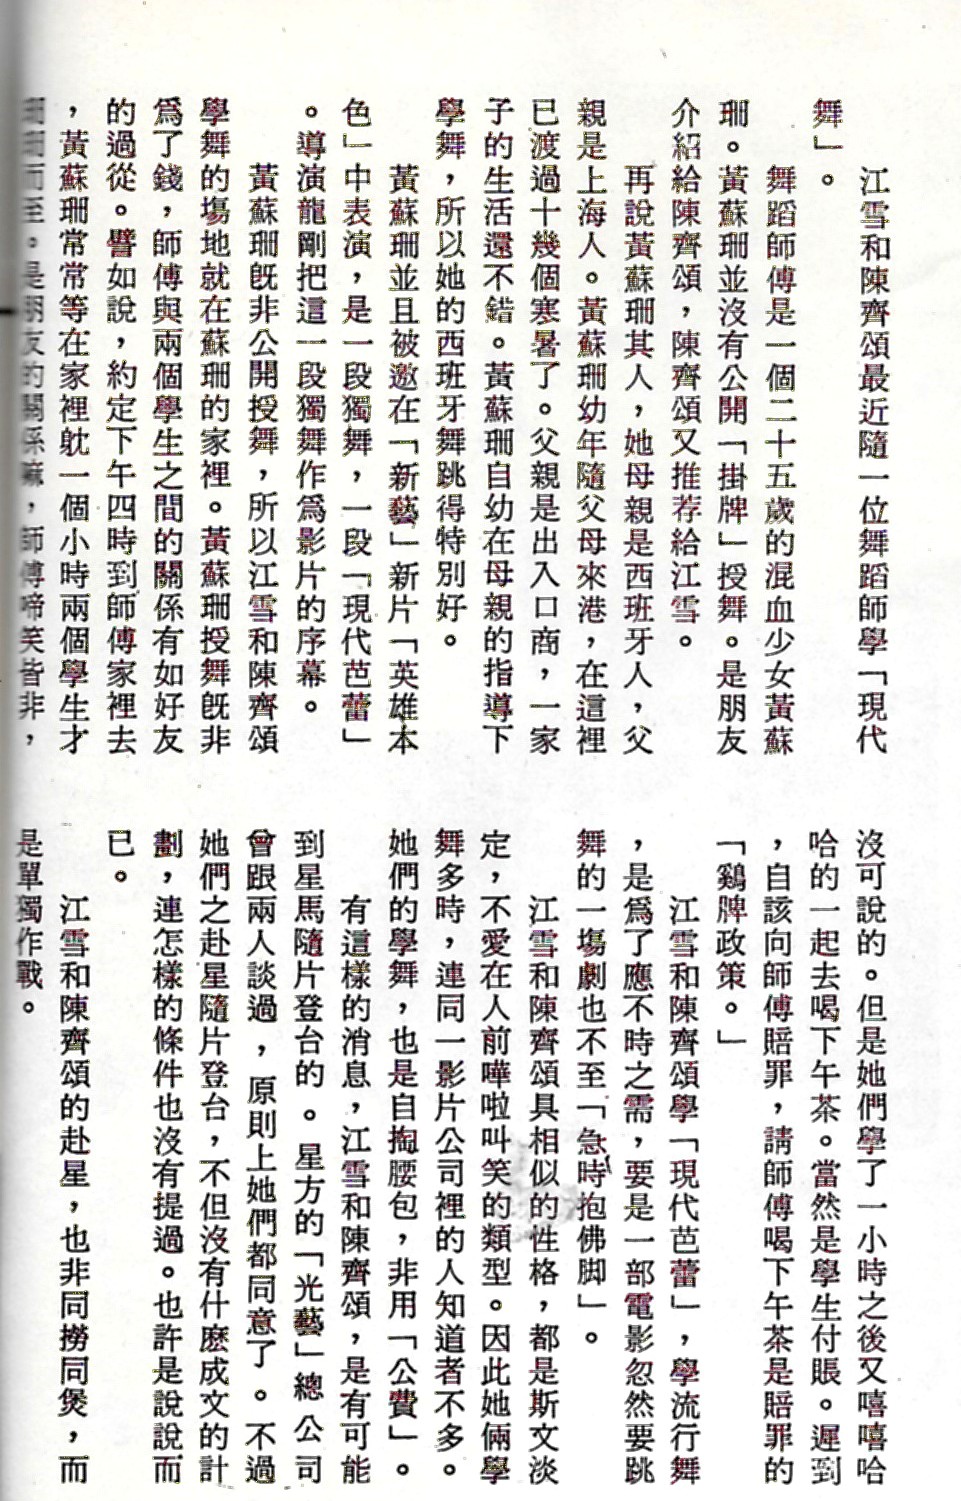 江雪和陳齊頌最近隨一位舞蹈師學「現代
舞」。
舞蹈師傅是一個二十五歲的混血少女黃蘇
珊。黃蘇珊並沒有公開「掛牌」授舞。是朋友
介紹給陳齊頌，陳齊頌又推荐給江雪。
再說黃蘇珊其人，她母親是西班牙人，父
親是上海人。黃蘇珊幼年隨父母來港，在這裡
已渡過十幾個寒暑了。父親是出入口商，一家
子的生活還不錯。黃蘇珊自幼在母親的指導下
學舞，所以她的西班牙舞跳得特別好。
黃蘇珊並且被邀在「新藝」新片「英雄本
色」中表演，是一段獨舞，一段「現代芭蕾」
。導演龍剛把這一段獨舞作爲影片的序幕。
黃蘇珊旣非公開授舞，所以江雪和陳齊頌
學舞的場地就在蘇珊的家裡。黃蘇珊授舞旣非
爲了錢，師傅與兩個學生之間的關係有如好友
的過從。譬如說，約定下午四時到師傅家裡去
，黃蘇珊常常等在家裡躭一個小時兩個學生才
珊珊而至。是朋友的關係嘛，師傅啼笑皆非，
沒可說的。但是她們學了一小時之後又嘻嘻哈
哈的一起去喝下午茶。當然是學生付賬。遲到
，自該向師傅賠罪，請師傅喝下午茶是賠罪的
「鷄牌政策。」
江雪和陳齊頌學「現代芭蕾」，學流行舞
，是爲了應不時之需，要是一部電影忽然要跳
舞的一場劇也不至「急時抱佛脚」。
江雪和陳齊頌具相似的性格，都是斯文淡
定，不愛在人前嘩啦叫笑的類型。因此她倆學
舞多時，連同一影片公司裡的人知道者不多。
她們的學舞，也是自掏腰包，非用「公費」。
有這樣的消息，江雪和陳齊頌，是有可能
到星馬隨片登台的。星方的「光藝」總公司
曾跟兩人談過，原則上她們都同意了。不過
她們之赴星隨片登台，不但沒有什麽成文的計
劃，連怎樣的條件也沒有提過。也許是說說而
已。
江雪和陳齊頌的赴星，也非同撈同煲，而
是單獨作戰。